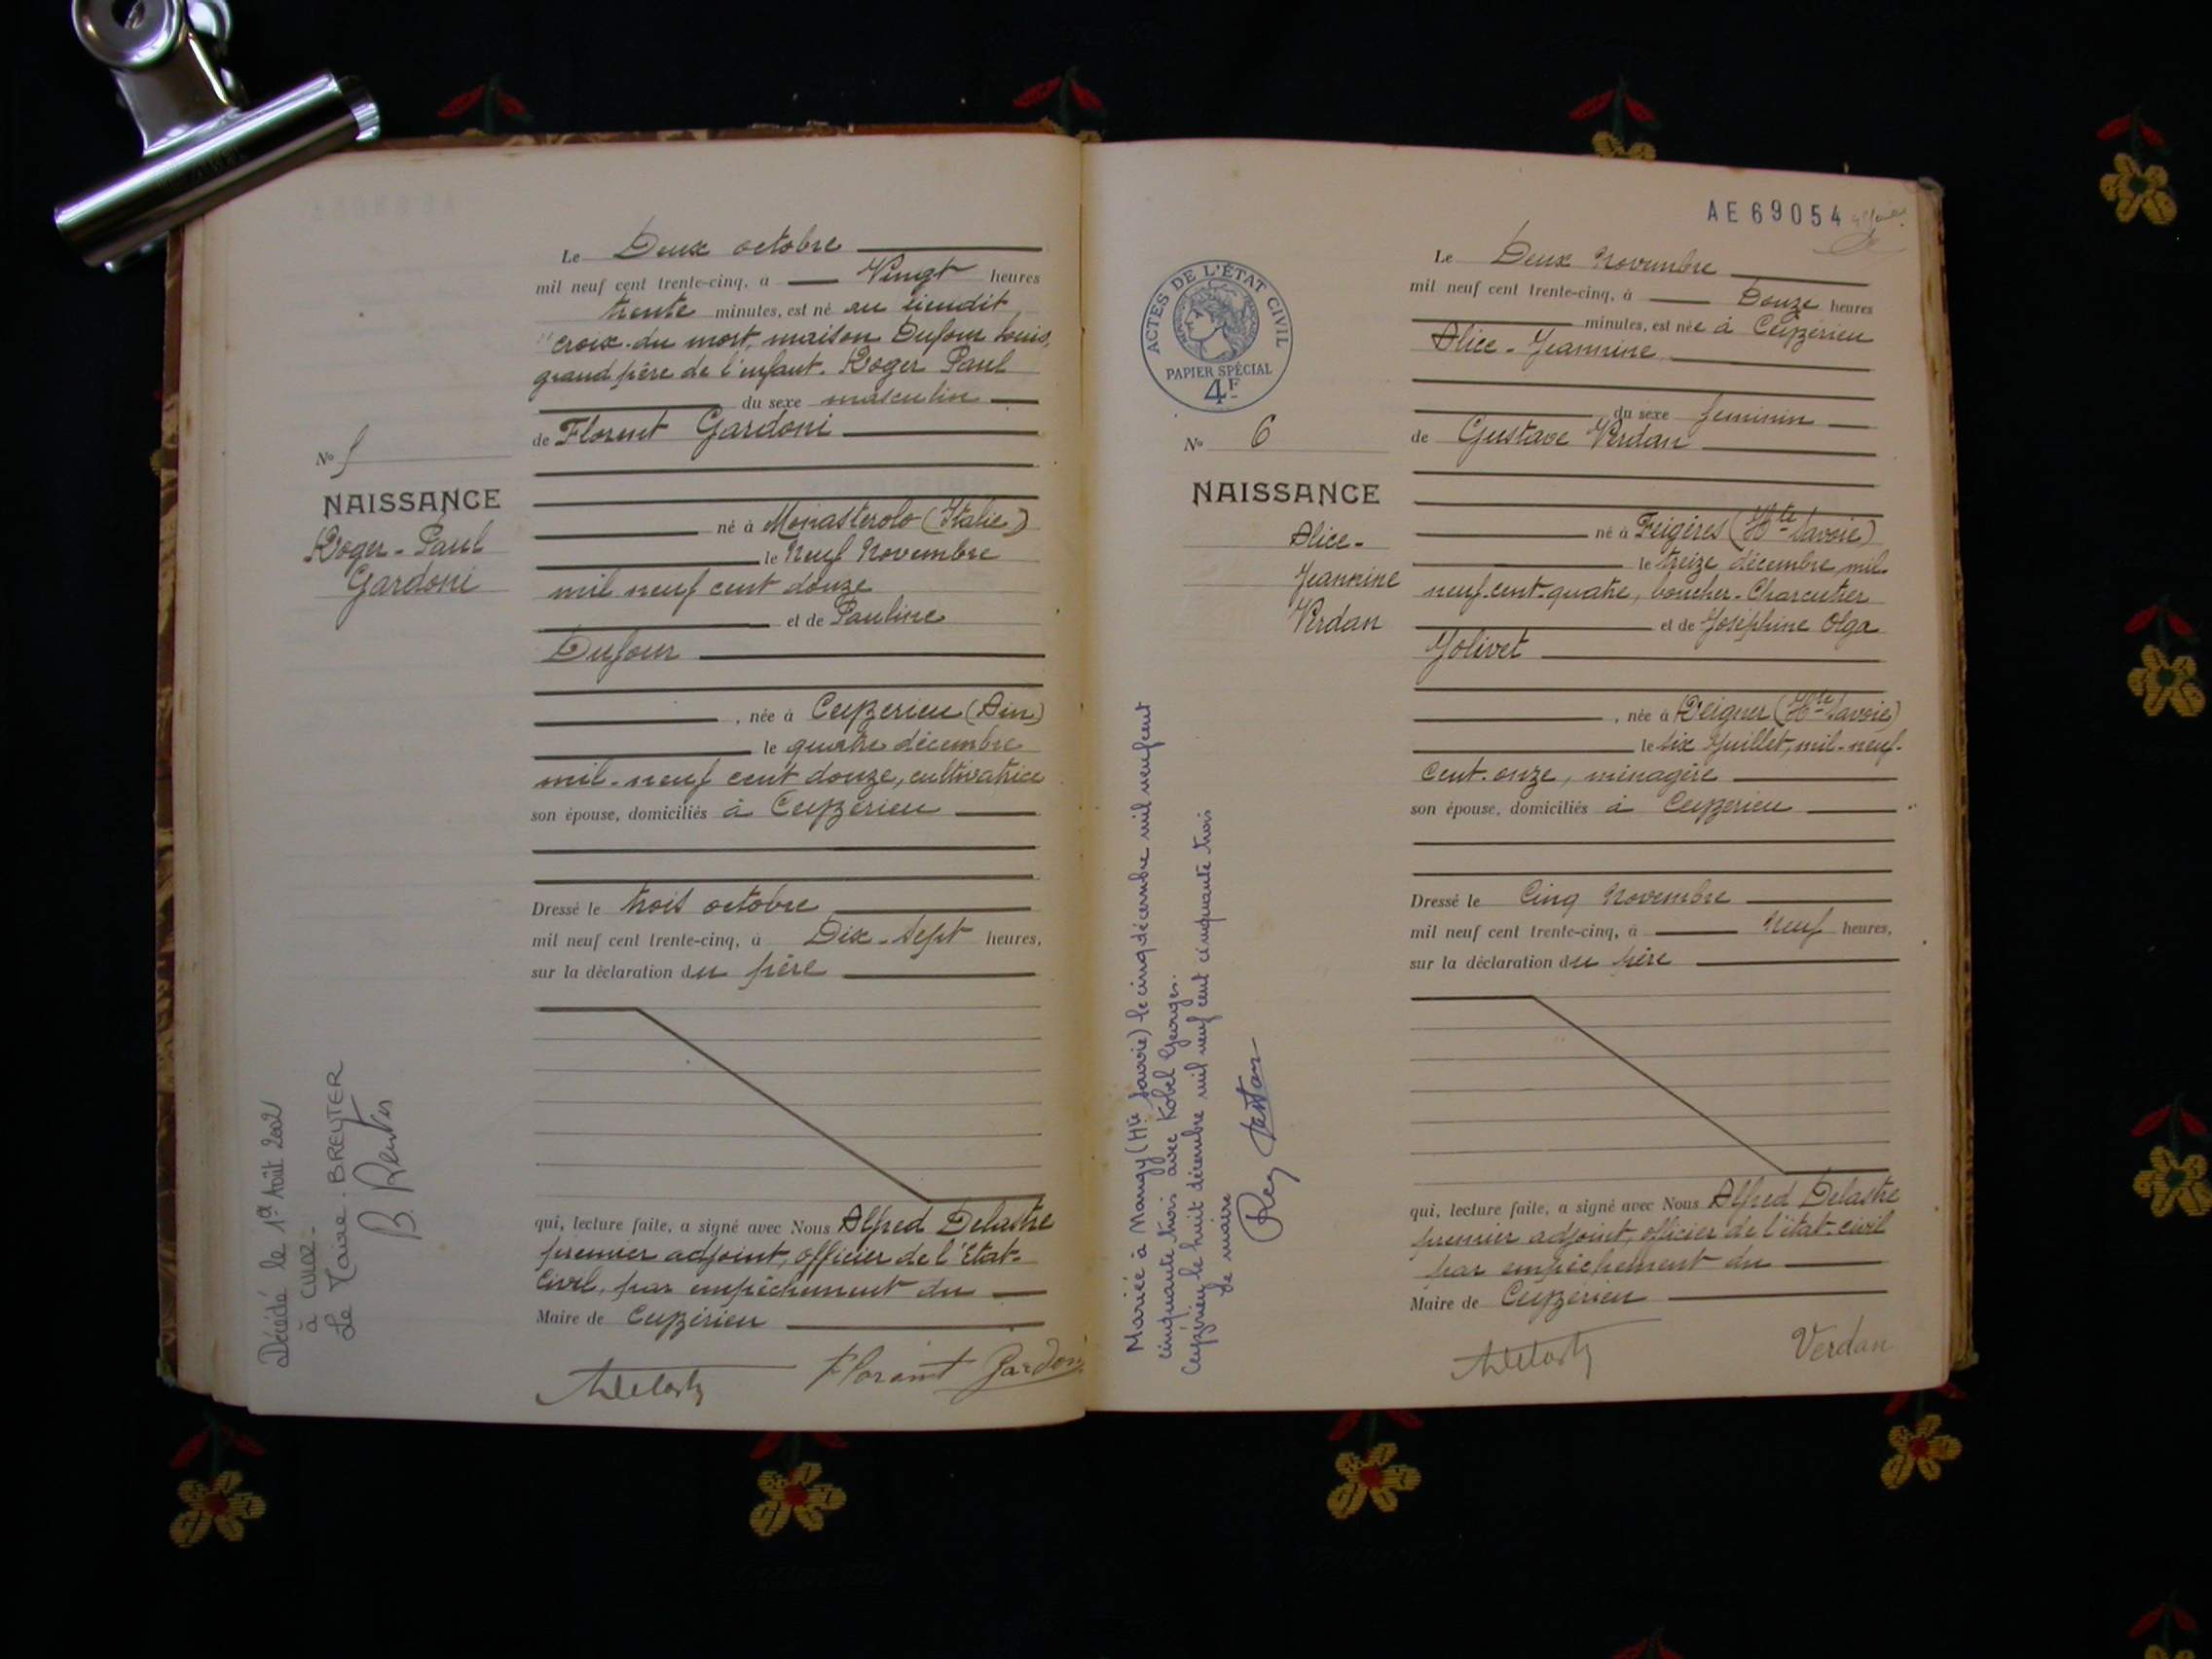 Le Deux octobre
mil neuf cent trente-cinq, à Vingt heures
trente minutes, est né au lieudit
"croix-du mort, maison Dufour Louis,
grand père de l'enfant. Roger Paul
du sexe masculin
de Florent Gardoni
né à Monasterolo (Italie)
le Neuf Novembre
mil neuf cent douze
et de Pauline
Dufour
, née à Ceyzerieu (Ain)
le quatre décembre
mil-neuf cent douze, cultivatrice
son épouse, domiciliés à Ceyzerieu
Dressé le trois octobre
mil neuf cent trente-cinq, à Dix-Sept heures,
sur la déclaration du père
qui, lecture faite, a signé avec Nous Alfred Delastre
premier adjoint, officier de l'Etat-
Civil, par empêchement du
Maire de Ceyzérieu
Florent Gardoni
No 5
NAISSANCE
Roger-Paul
Gardoni
Décédé le 1er Août 2002
à
Le Maire: BREYTER
AE 69054
ACTES DE L'ÉTAT CIVIL
PAPIER SPÉCIAL
4F
No 6
NAISSANCE
Alice-
Jeannine
Verdan
Mariée à Nangy (Hte Savoie) le cinq décembre mil neuf cent
cinquante trois avec Kobel Georges.
Ceyzérieu le huit décembre mil neuf cent cinquante trois
Le maire
Le Deux Novembre
mil neuf cent trente-cinq, à Douze heures
minutes, est née à Ceyzérieu
Alice-Jeannine
du sexe feminin
de Gustave Verdan
né à Feigères (Hte-Savoie)
le treize décembre mil-
neuf-cent-quatre, boucher-Charcutier
et de Joséphine Olga
Jolivet
, née à Reigner (Hte-Savoie)
le six Juillet, mil-neuf-
cent-onze, ménagère
son épouse, domiciliés à Ceyzerieu
Dressé le Cinq Novembre
mil neuf cent trente-cinq, à Neuf heures,
sur la déclaration du père
qui, lecture faite, a signé avec Nous Alfred Delastre
premier adjoint, officier de l'état-civil
par empêchement du
Maire de Ceyzerieu
Verdan